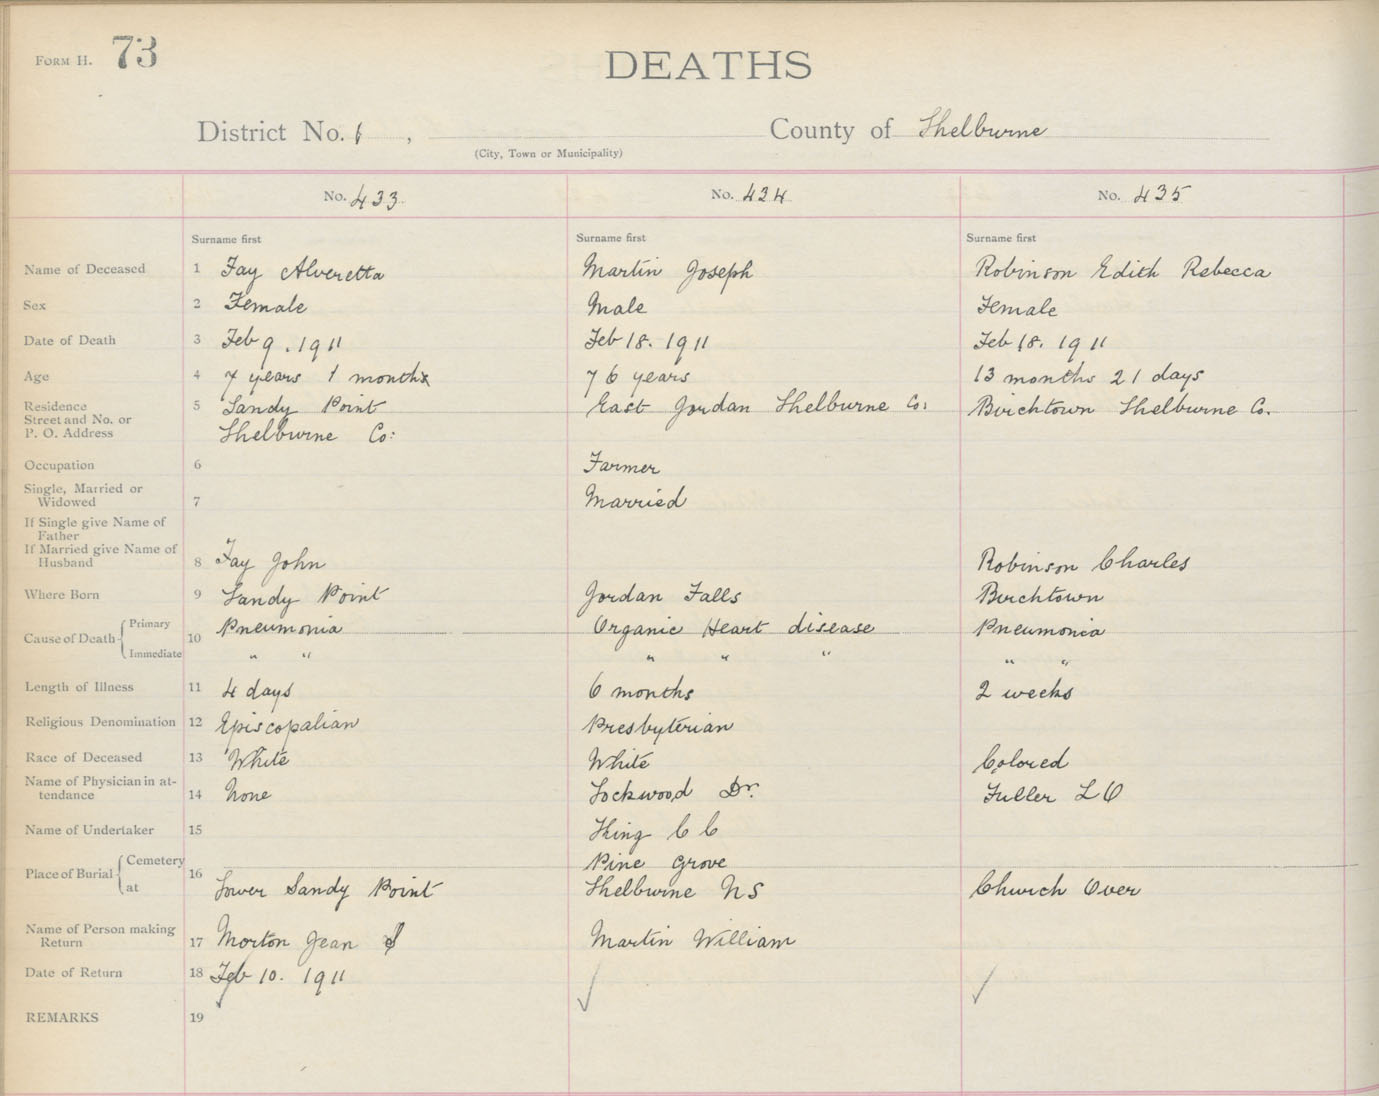 FORM H. 73
DEATHS
District No. 6 , County of Shelburne
(City, Town or Municipality)
No. 433 No. 434 No. 435
Surname first Surname first Surname first
Name of Deceased 1 Fay Alveretta Martin Joseph Robinson Edith Rebecca
Sex 2 Female Male Female
Date of Death 3 Feb 9. 1911 Feb 18. 1911 Feb 18. 1911
Age 4 7 years 1 months 76 years 13 months 21 days
Residence 5 Sandy Point East Jordan Shelburne Co: Birchtown Shelburne Co.
Street and No. or
P. O. Address Shelburne Co:
Occupation 6 Farmer
Single, Married or
Widowed 7 Married
If Single give Name of
Father
If Married give Name of
Husband 8 Fay John Robinson Charles
Where Born 9 Sandy Point Jordan Falls Birchtown
Cause of Death Primary 10 Pneumonia Organic Heart disease Pneumonia
Immediate " " " " " " "
Length of Illness 11 4 days 6 months 2 weeks
Religious Denomination 12 Episcopalian Presbyterian
Race of Deceased 13 White White Colored
Name of Physician in at-
tendance 14 None Lockwood Dr. Fuller L O
Name of Undertaker 15 King C C
Place of Burial Cemetery 16 Pine Grove
at Lower Sandy Point Shelburne NS Church Over
Name of Person making
Return 17 Morton Jean Martin William
Date of Return 18 Feb 10. 1911
REMARKS 19